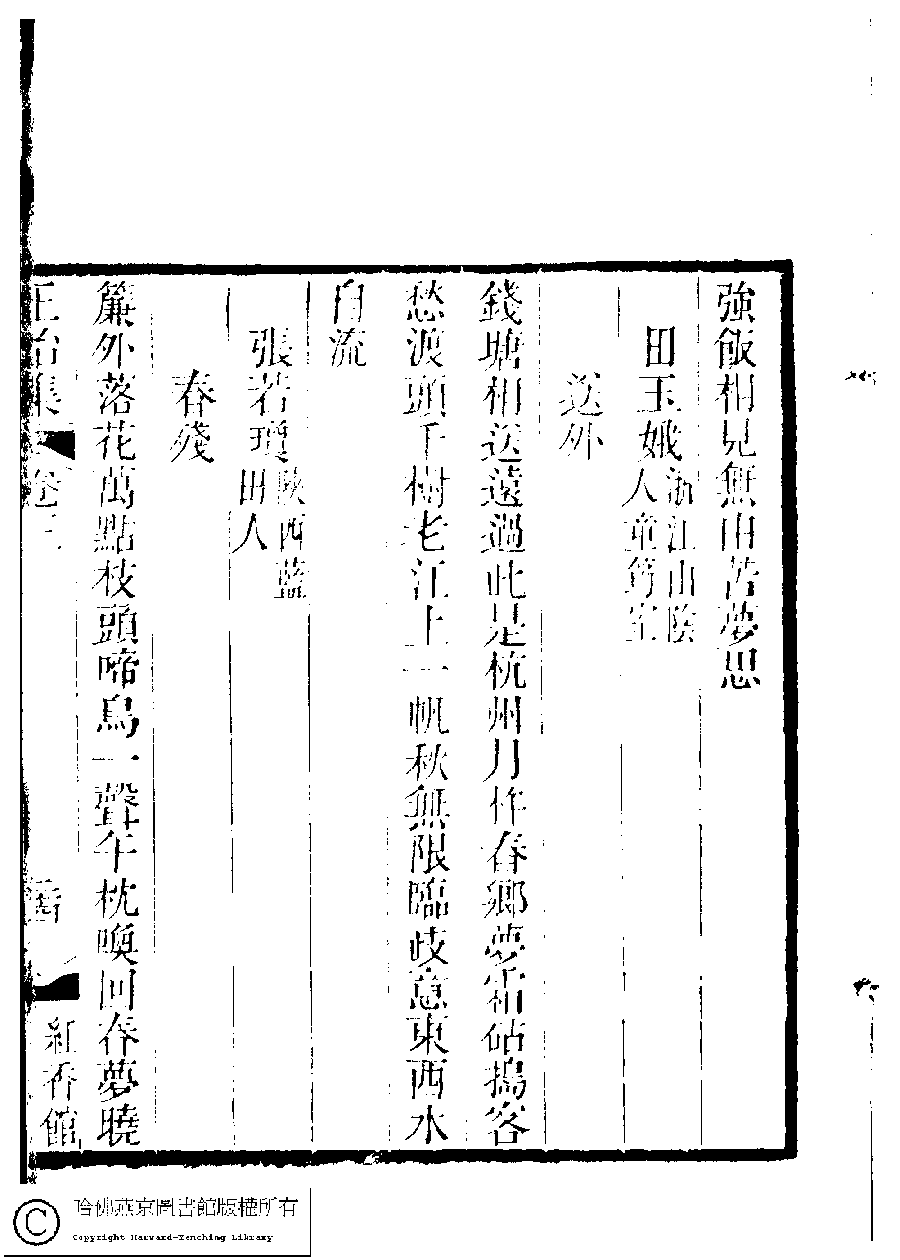 強飯相見無由苦夢思
田玉娥浙江山陰
人童筠室
送外
錢塘相送遠過此是杭州月作春鄉夢霜砧搗客
愁渡頭千樹老江上一帆秋無限臨歧意東西水
自流
張若瓊陝西藍
田人
春殘
簾外落花萬點枝頭啼鳥一聲午枕喚回春夢曉
正始集 卷三
紅香館
哈佛燕京圖書館版權所有
Copyright Harvard-Yenching Library